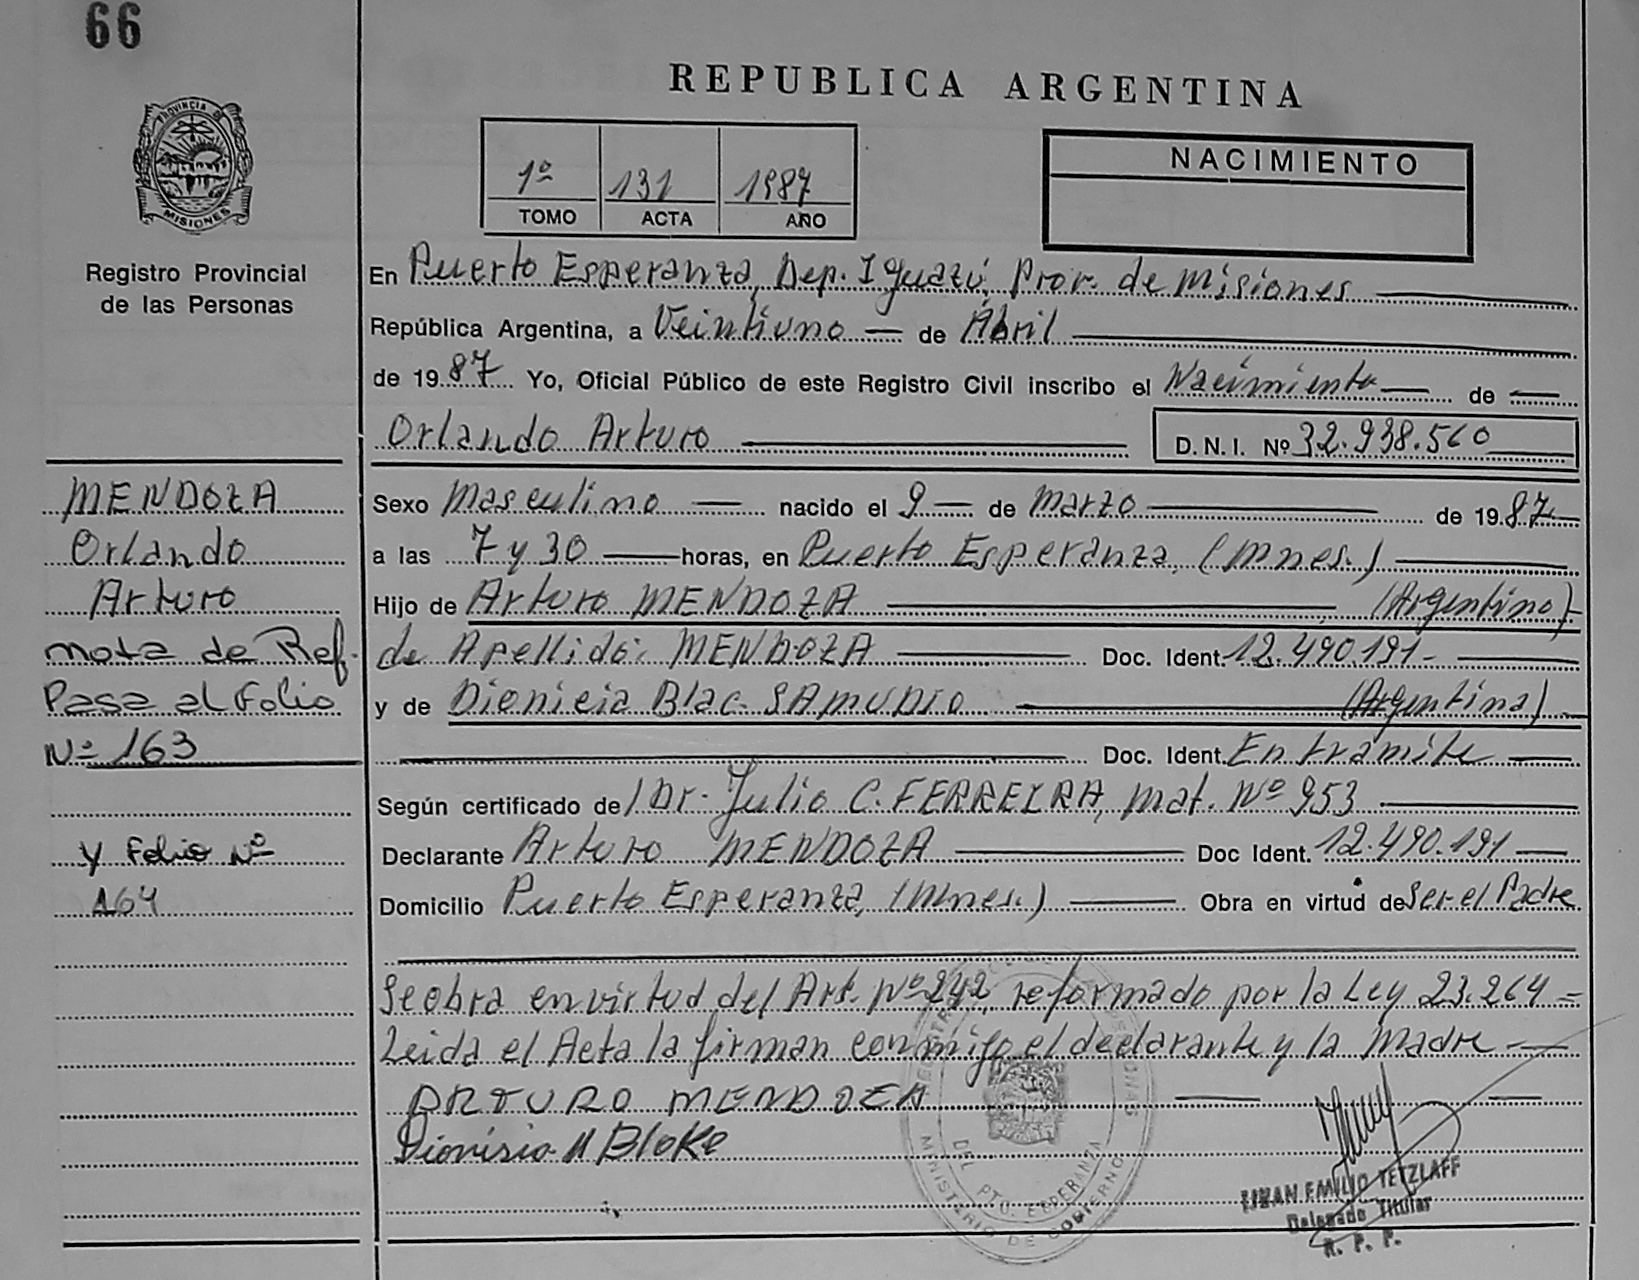 66
REPUBLICA ARGENTINA
PROVINCIA DE
MISIONES
Registro Provincial
de las Personas
1º 131 1987
TOMO ACTA AÑO
NACIMIENTO
En Puerto Esperanza, Dep. Iguazú, Prov. de Misiones
República Argentina, a Veintiuno de Abril
de 1987 Yo, Oficial Público de este Registro Civil inscribo el Nacimiento de
Orlando Arturo
D.N.I. Nº 32.938.560
MENDOZA
Orlando
Arturo
nota de Ref.
Pasa al Folio
Nº 163
y Folio Nº
164
Sexo Masculino nacido el 9 de Marzo de 1987
a las 7 y 30 horas, en Puerto Esperanza, (Mnes.)
Hijo de Arturo MENDOZA (Argentino)
de Apellido: MENDOZA Doc. Ident. 12.490.191
y de Dionicia Blac. SAMUDIO (Argentina)
Doc. Ident. En trámite
Según certificado de/Dr. Julio C. FERREIRA, Mat. Nº 953
Declarante Arturo MENDOZA Doc Ident. 12.490.191
Domicilio Puerto Esperanza, (Mnes.) Obra en virtud de Ser el Padre
Se obra en virtud del Art. Nº 242, reformado por la Ley 23.264
Leida el Acta la firman conmigo el declarante y la Madre
ARTURO MENDOZA
Dionisia Bloke
DEL PTO. ESPERANZA
MINISTERIO DE GOBIERNO
EMILIO TETZLAFF
Delegado Titular
R. P. P.